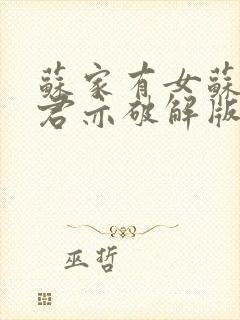 蘇家有女蘇
君亦破解版
巫哲